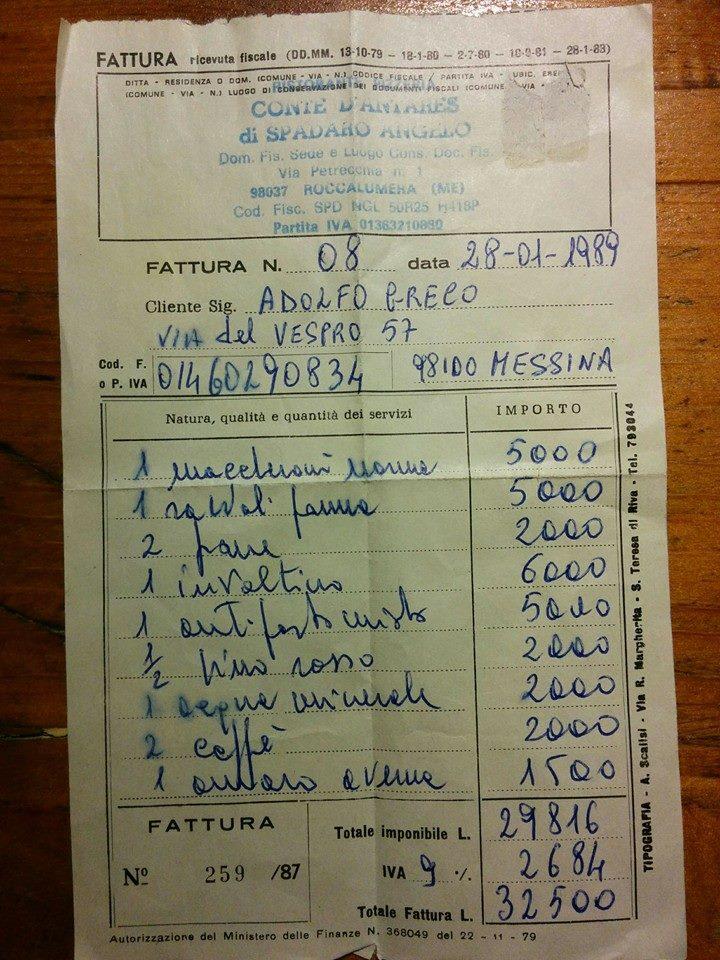 FATTURA ricevuta fiscale (DD.MM. 13-10-79 - 18-1-80 - 2-7-80 - 16-9-81 - 28-1-83)
DITTA - RESIDENZA O DOM. (COMUNE - VIA - N.) CODICE FISCALE / PARTITA IVA - UBIC. ESER
(COMUNE - VIA - N.) LUOGO DI CONSERVAZIONE DEI DOCUMENTI FISCALI (COMUNE - VIA -
CONTE D'ANTARES
di SPADARO ANGELO
Dom. Fis. Sede e Luogo Cons. Doc. Fis.
Via Petrecchia n. 1
98037 ROCCALUMERA (ME)
Cod. Fisc. SPD NGL 50R25 H418P
Partita IVA 01363210830
FATTURA N. 08 data 28-01-1989
Cliente Sig. ADOLFO GRECO
VIA del VESPRO 57
Cod. F. o P. IVA 01460290834 98100 MESSINA
Natura, qualità e quantità dei servizi IMPORTO
1 maccheroni norma 5000
1 ravioli panna 5000
2 pane 2000
1 involtino 6000
1 antipasto misto 5000
1/2 vino rosso 2000
1 acqua minerale 2000
2 caffè 2000
1 amaro averna 1500
FATTURA
Nº 259 /87
Totale imponibile L. 29816
IVA 9 %. 2684
Totale Fattura L. 32500
Autorizzazione del Ministero delle Finanze N. 368049 del 22 - 11 - 79
TIPOGRAFIA - A. Scalisi - Via R. Margherita - S. Teresa di Riva - Tel. 793044